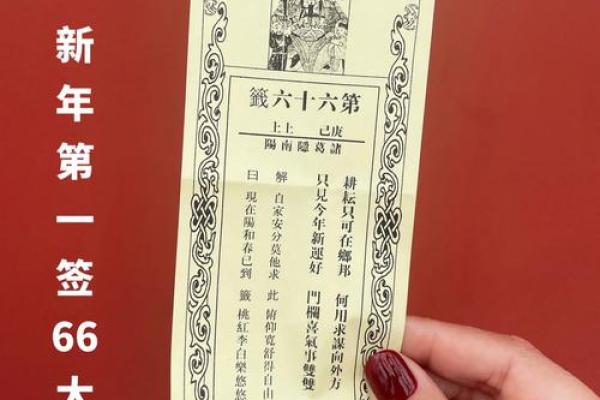 新年第一签66大
第六十六籤
庚己 上上
諸葛隱南陽
耕耘只可在鄉邦 何用求謀向外方
只見今年新運好 門欄喜氣事雙雙
解 自家安分莫他求 此 俯仰寬舒得自由
曰 現在陽和春已到 籤 桃紅李白樂悠悠